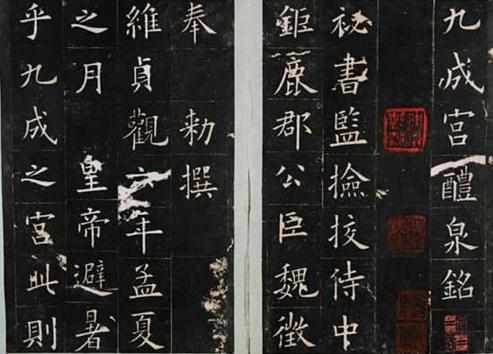 九成宮醴泉銘
祕書監撿挍侍中
鉅鹿郡公臣魏徵
奉 勑撰
維貞觀六年孟夏
之月 皇帝避暑
乎九成之宮此則